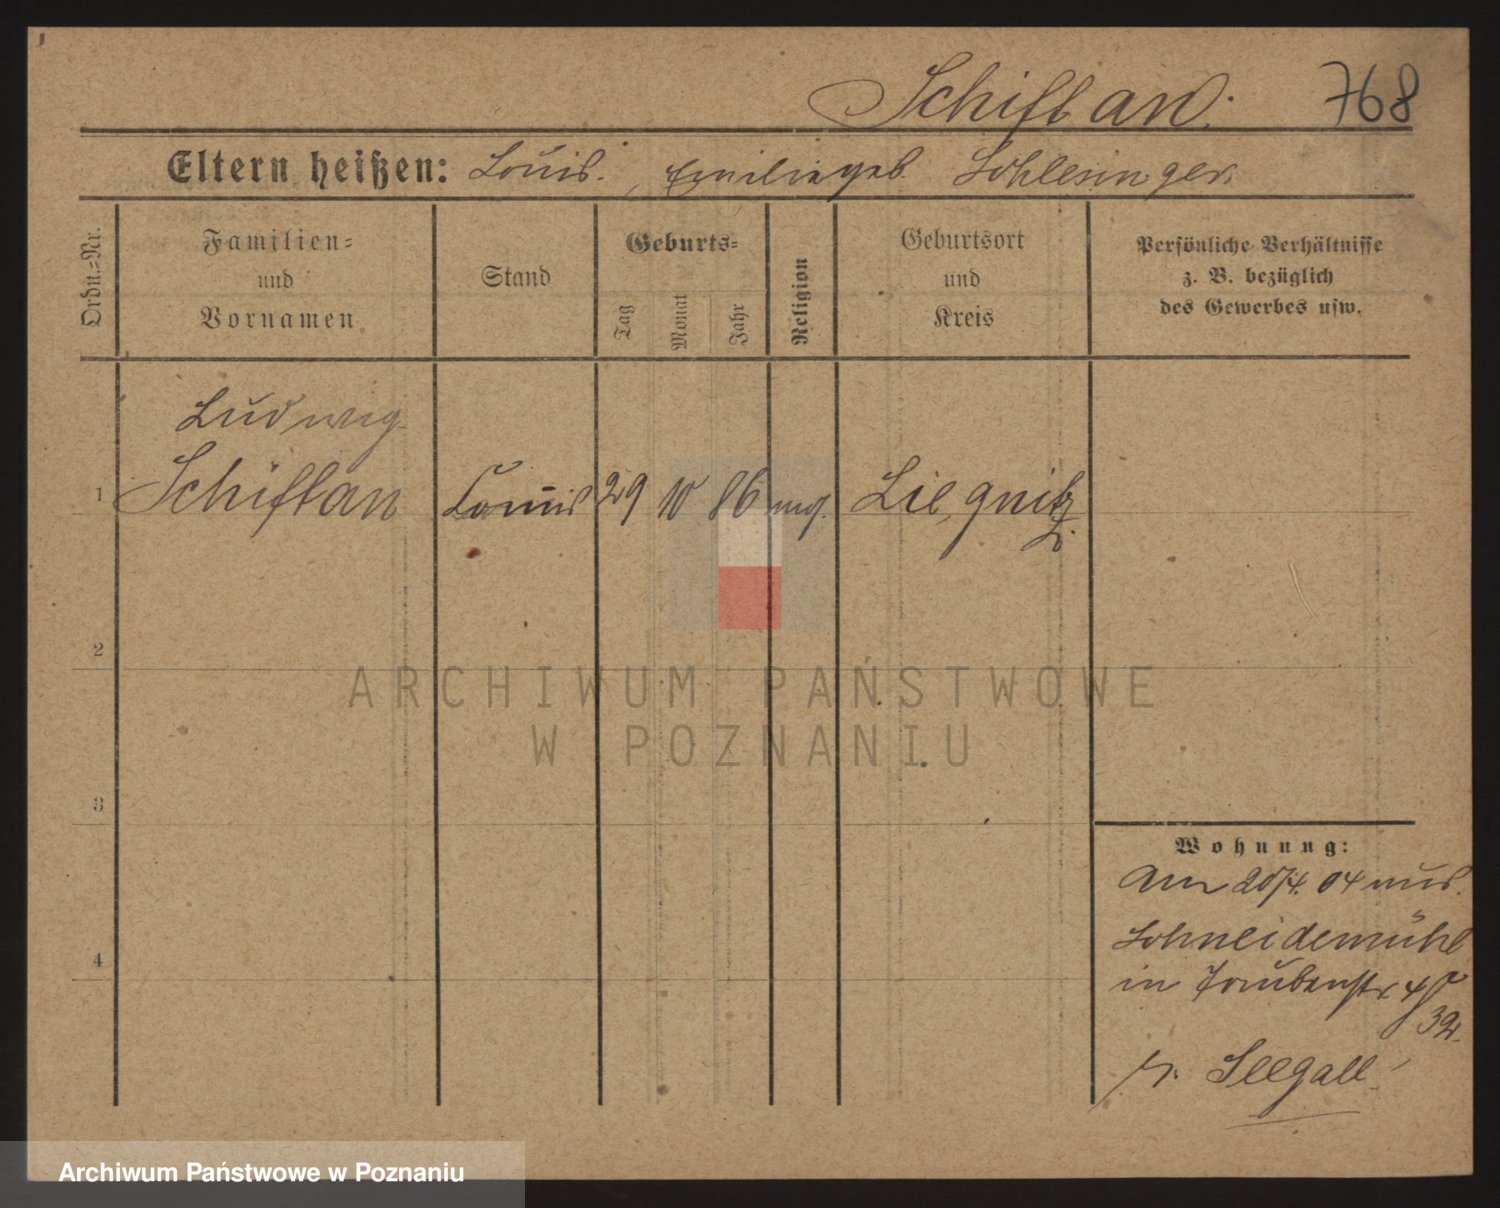 Schiftan.
768
Eltern heißen: Louis. , Emilie geb. Schlesinger.
Ordn.-Nr.
Familien-
und
Vornamen
Stand
Geburts-
Tag
Monat
Jahr
Religion
Geburtsort
und
Kreis
Persönliche Verhältnisse
z. B. bezüglich
des Gewerbes usw.
Ludwig
1 Schiftan Commis 29 10 86 mos. Liegnitz
2
3
4
Wohnung:
Am 20/4. 04 aus
Schneidemühl
in
32
b. Seegall
ARCHIWUM PAŃSTWOWE
W POZNANIU
Archiwum Państwowe w Poznaniu